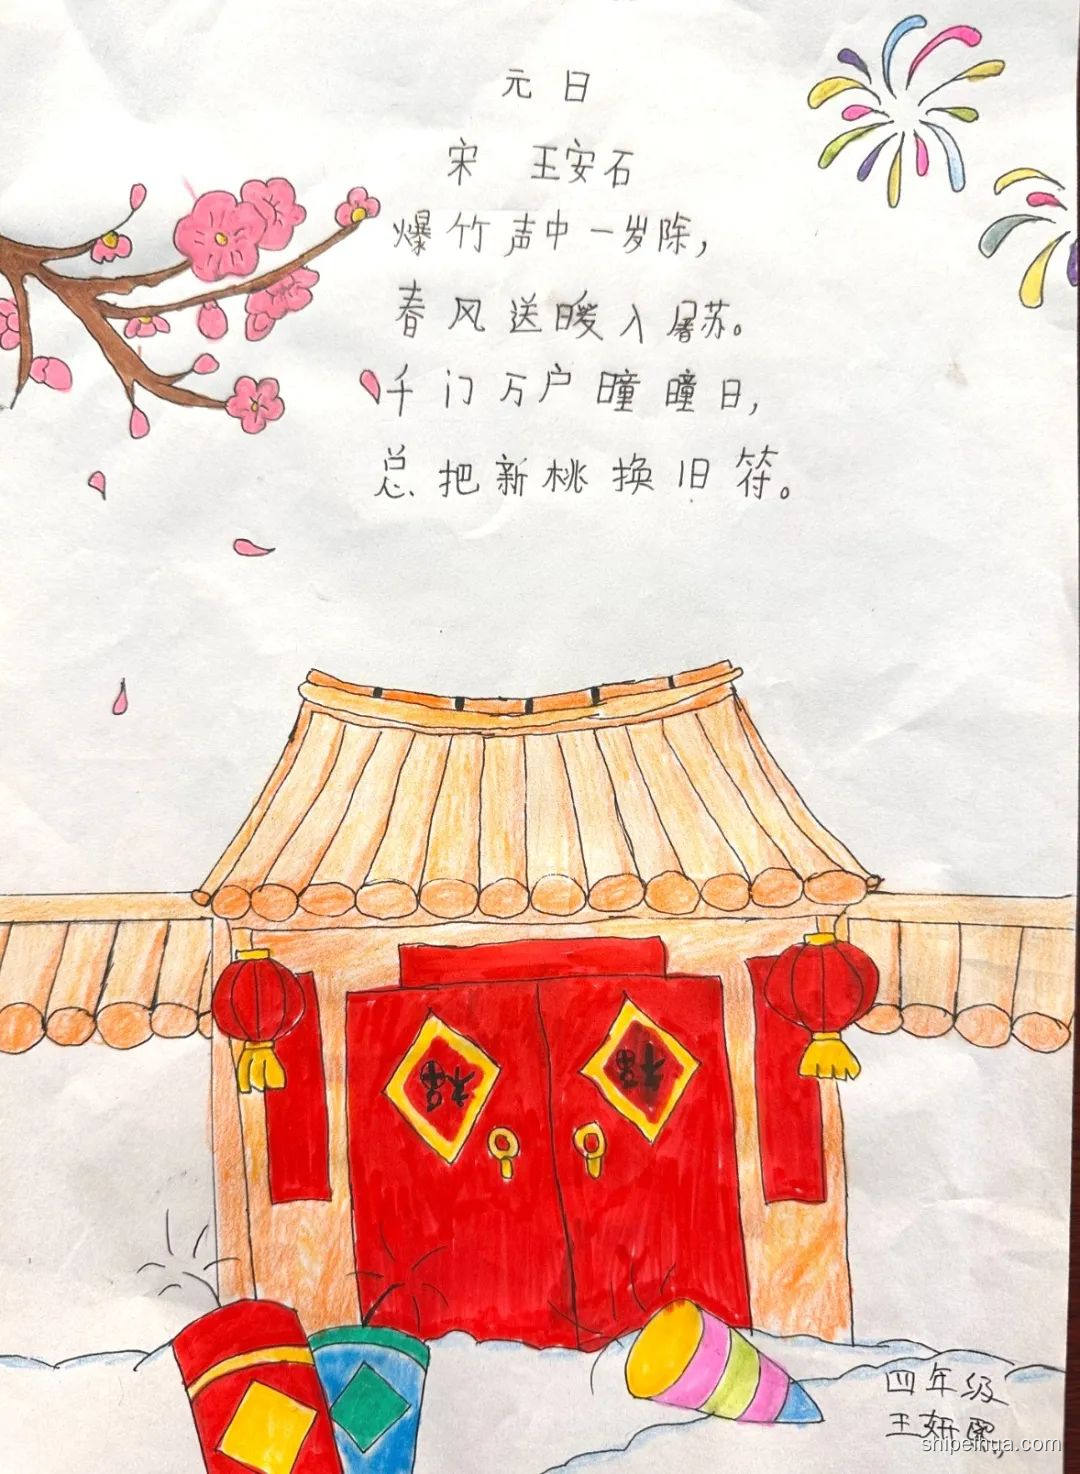 元日
宋 王安石
爆竹声中一岁除，
春风送暖入屠苏。
千门万户曈曈日，
总把新桃换旧符。
福 福
四年级
王妍
shipeihua.com